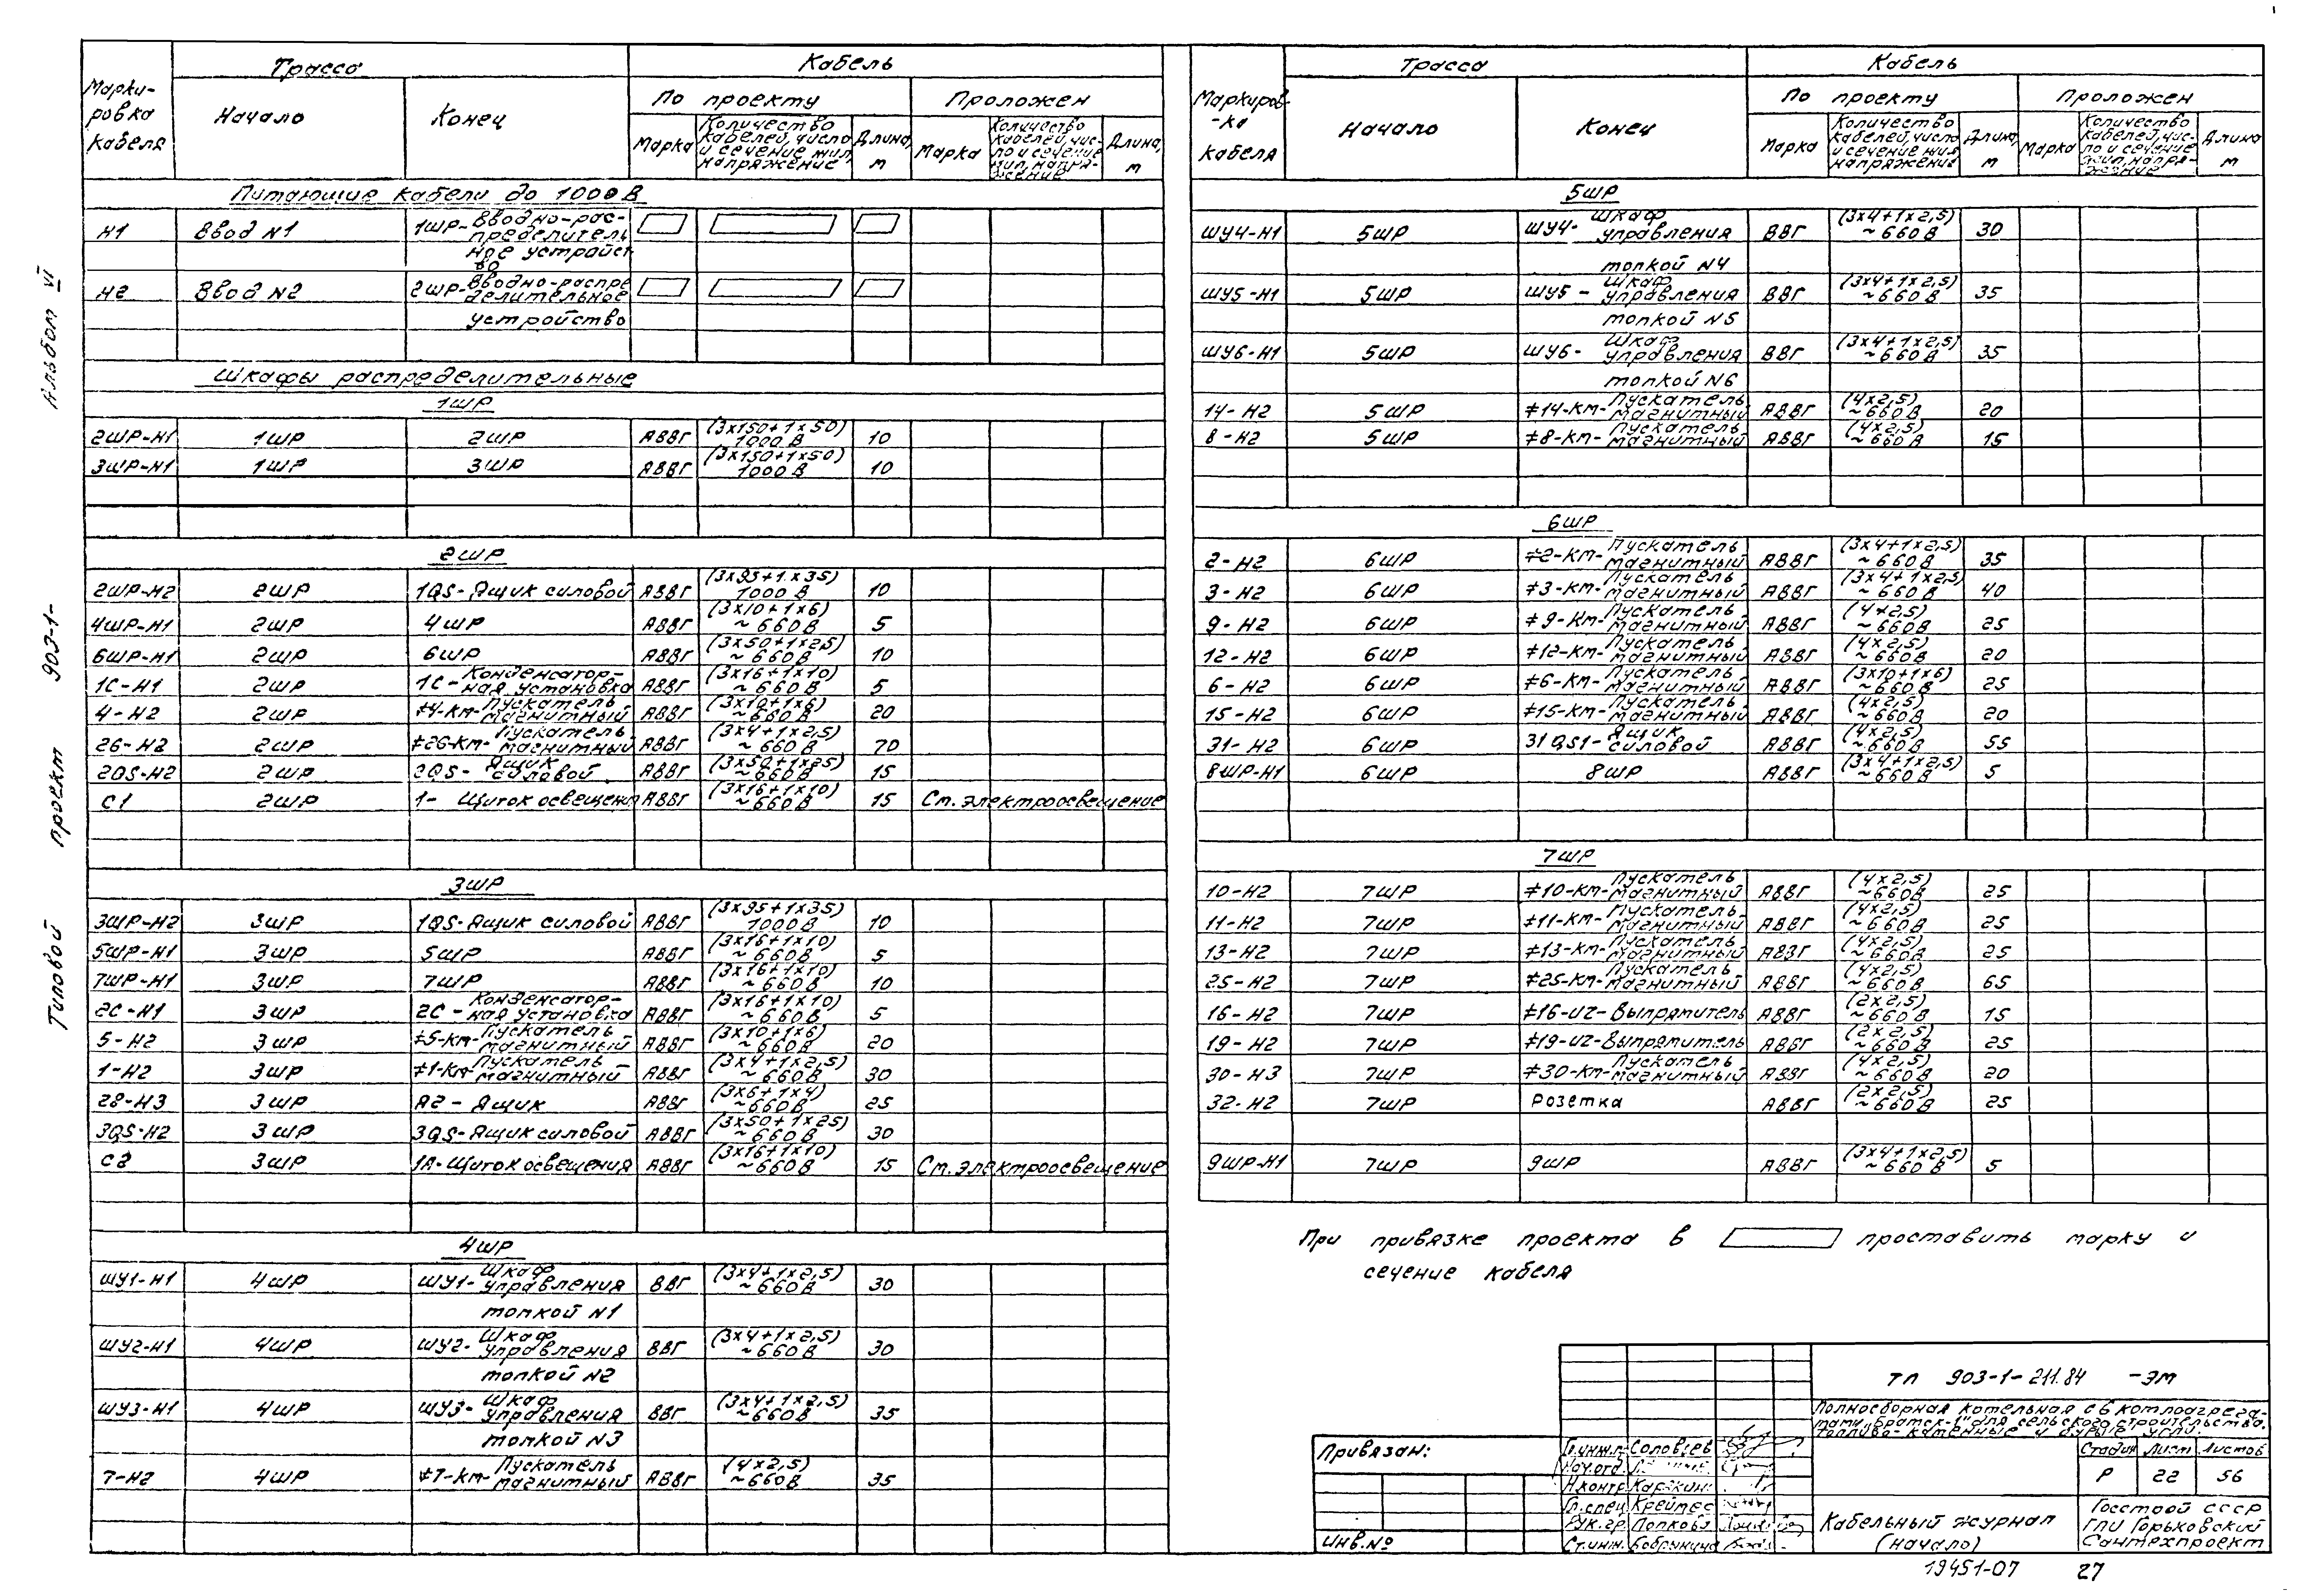 Альбом VI
Типовой проект 903-1-
Маркировка кабеля | Трасса | Кабель
Начало | Конец | По проекту | Проложен
Марка | Количество кабелей, число и сечение жил, напряжение | Длина, м | Марка | Количество кабелей, число и сечение жил, напряжение | Длина, м
Питающие кабели до 1000 В
Н1 Ввод N1 1ШР- Вводно-распределительное устройство
Н2 Ввод N2 2ШР- Вводно-распределительное устройство
Шкафы распределительные
1ШР
2ШР-Н1 1ШР 2ШР АВВГ (3х150+1х50) 1000 В 10
3ШР-Н1 1ШР 3ШР АВВГ (3х150+1х50) 1000 В 10
2ШР
2ШР-Н2 2ШР 1QS-Ящик силовой АВВГ (3х95+1х35) 1000 В 10
4ШР-Н1 2ШР 4ШР АВВГ (3х10+1х6) ~660В 5
6ШР-Н1 2ШР 6ШР АВВГ (3х50+1х25) ~660В 10
1С-Н1 2ШР 1С- Конденсаторная установка АВВГ (3х16+1х10) ~660В 5
4-Н2 2ШР ≠4-КМ- Пускатель магнитный АВВГ (3х10+1х6) ~660В 20
26-Н2 2ШР ≠26-КМ- Пускатель магнитный АВВГ (3х4+1х2,5) ~660В 70
2QS-Н2 2ШР 2QS- Ящик силовой АВВГ (3х50+1х25) ~660В 15
С1 2ШР 1- Щиток освещения АВВГ (3х16+1х10) ~660В 15 См. электроосвещение
3ШР
3ШР-Н2 3ШР 1QS-Ящик силовой АВВГ (3х95+1х35) 1000 В 10
5ШР-Н1 3ШР 5ШР АВВГ (3х16+1х10) ~660В 5
7ШР-Н1 3ШР 7ШР АВВГ (3х16+1х10) ~660В 10
2С-Н1 3ШР 2С- Конденсаторная установка АВВГ (3х16+1х10) ~660В 5
5-Н2 3ШР ≠5-КМ- Пускатель магнитный АВВГ (3х10+1х6) ~660В 20
1-Н2 3ШР ≠1-КМ- Пускатель магнитный АВВГ (3х4+1х2,5) ~660В 30
28-Н3 3ШР А2- Ящик АВВГ (3х6+1х4) ~660В 25
3QS-Н2 3ШР 3QS-Ящик силовой АВВГ (3х50+1х25) ~660В 30
С2 3ШР 1А-Щиток освещения АВВГ (3х16+1х10) ~660В 15 См. электроосвещение
4ШР
ШУ1-Н1 4ШР ШУ1- Шкаф управления топкой N1 ВВГ (3х4+1х2,5) ~660В 30
ШУ2-Н1 4ШР ШУ2- Шкаф управления топкой N2 ВВГ (3х4+1х2,5) ~660В 30
ШУ3-Н1 4ШР ШУ3- Шкаф управления топкой N3 ВВГ (3х4+1х2,5) ~660В 35
7-Н2 4ШР ≠7-КМ- Пускатель магнитный АВВГ (4х2,5) ~660В 35
Маркировка кабеля | Трасса | Кабель
Начало | Конец | По проекту | Проложен
Марка | Количество кабелей, число и сечение жил, напряжение | Длина, м | Марка | Количество кабелей, число и сечение жил, напряжение | Длина, м
5ШР
ШУ4-Н1 5ШР ШУ4- Шкаф управления топкой N4 ВВГ (3х4+1х2,5) ~660В 30
ШУ5-Н1 5ШР ШУ5- Шкаф управления топкой N5 ВВГ (3х4+1х2,5) ~660В 35
ШУ6-Н1 5ШР ШУ6- Шкаф управления топкой N6 ВВГ (3х4+1х2,5) ~660В 35
14-Н2 5ШР ≠14-КМ- Пускатель магнитный АВВГ (4х2,5) ~660В 20
8-Н2 5ШР ≠8-КМ- Пускатель магнитный АВВГ (4х2,5) ~660В 15
6ШР
2-Н2 6ШР ≠2-КМ- Пускатель магнитный АВВГ (3х4+1х2,5) ~660В 35
3-Н2 6ШР ≠3-КМ- Пускатель магнитный АВВГ (3х4+1х2,5) ~660В 40
9-Н2 6ШР ≠9-КМ- Пускатель магнитный АВВГ (4х2,5) ~660В 25
12-Н2 6ШР ≠12-КМ- Пускатель магнитный АВВГ (4х2,5) ~660В 20
6-Н2 6ШР ≠6-КМ- Пускатель магнитный АВВГ (3х10+1х6) ~660В 25
15-Н2 6ШР ≠15-КМ- Пускатель магнитный АВВГ (4х2,5) ~660В 20
31-Н2 6ШР 31QS1- Ящик силовой АВВГ (4х2,5) ~660В 55
8ШР-Н1 6ШР 8ШР АВВГ (3х4+1х2,5) ~660В 5
7ШР
10-Н2 7ШР ≠10-КМ- Пускатель магнитный АВВГ (4х2,5) ~660В 25
11-Н2 7ШР ≠11-КМ- Пускатель магнитный АВВГ (4х2,5) ~660В 25
13-Н2 7ШР ≠13-КМ- Пускатель магнитный АВВГ (4х2,5) ~660В 25
25-Н2 7ШР ≠25-КМ- Пускатель магнитный АВВГ (4х2,5) ~660В 65
16-Н2 7ШР ≠16-UZ- Выпрямитель АВВГ (2х2,5) ~660В 15
19-Н2 7ШР ≠19-UZ-Выпрямитель АВВГ (2х2,5) ~660В 25
30-Н3 7ШР ≠30-КМ- Пускатель магнитный АВВГ (4х2,5) ~660В 20
32-Н2 7ШР Розетка АВВГ (2х2,5) ~660В 25
9ШР-Н1 7ШР 9ШР АВВГ (3х4+1х2,5) ~660В 5
При привязке проекта в проставить марку и
сечение кабеля
Привязан:
Инв.№
Гл.инж.п. Соловьев
Нач.отд.
Н.контр.
Гл.спец.
Рук.гр. Попкова
Ст.инж.
ТП 903-1-211.84 -ЭМ
Полносборная котельная с 6 котлоагрега-
тами „Братск-1" для сельского строительства.
Топливо- каменные и бурые угли.
Стадия Лист Листов
Р 22 56
Кабельный журнал
(начало)
Госстрой СССР
ГПИ Горьковский
Сантехпроект
19451-07 27